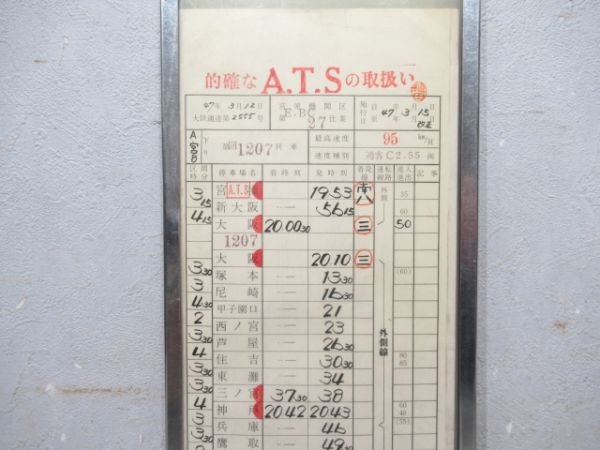 的確な A.T.S の取扱い
47年 3月12日
大鉄運達第2555号
宮原機関区
第 E.B. 27 仕業
施行月日 自 47年 3月15日 至 年 月 日 改正
A 宮
下り 1207 列車
最高速度 95 km/H
速度種別 通客C2.55
区間 時分 停車場名 着時刻 発時刻 着発線 運転線路 進入進出 記事
3 15 宮 A.T.S 1953 外側 35
4 15 新大阪 — 56 15 60
大阪 20 00 30 三 50
1207
大阪 2010 三
3 30 塚本 — 13 30 (60)
3 尼崎 — 16 30
4 30 甲子園口 — 21
2 西ノ宮 — 23
3 30 芦屋 — 26 30 外側線
4 住吉 — 30 30 80 85
3 30 東灘 — 34
3 30 三ノ宮 37 30 38
4 神戸 2042 2043 60 40
3 兵庫 — 46 (55)
3 30 鷹取 — 49 30